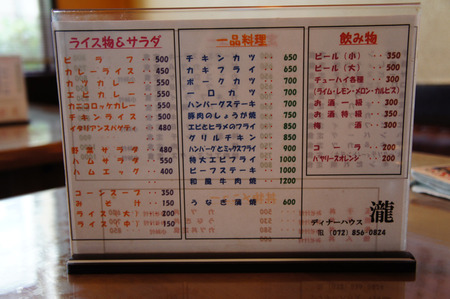 ライス物&サラダ
ピラフ 500
カレーライス 450
カツカレー
エビカレー
カニコロッケカレー 500
チキンライス 500
イタリアンスパゲティ 450
野菜サラダ 480
ハムサラダ
ハムエッグ 400
コーンスープ 350
みそ汁 150
ライス(大)
ライス(中) 150
一品料理
チキンカツ 650
カキフライ 650
ポークカツ 700
一口カツ 700
ハンバーグステーキ 700
豚肉のしょうが焼 750
エビとヒラメのフライ 850
グリルチキン 850
ハンバーグとミックスフライ 900
特大エビフライ 1000
ビーフステーキ 1000
和風牛肉焼 1200
うなぎ蒲焼 600
飲み物
ビール(小) 350
ビール(大) 500
チューハイ各種 300
(ライム・レモン・メロン・カルピス)
お酒一級 300
お酒特級 350
梅酒 300
コーラ 200
バヤリースオレンジ 200
瀧
ディナーハウス
☎ (072) 856-0824